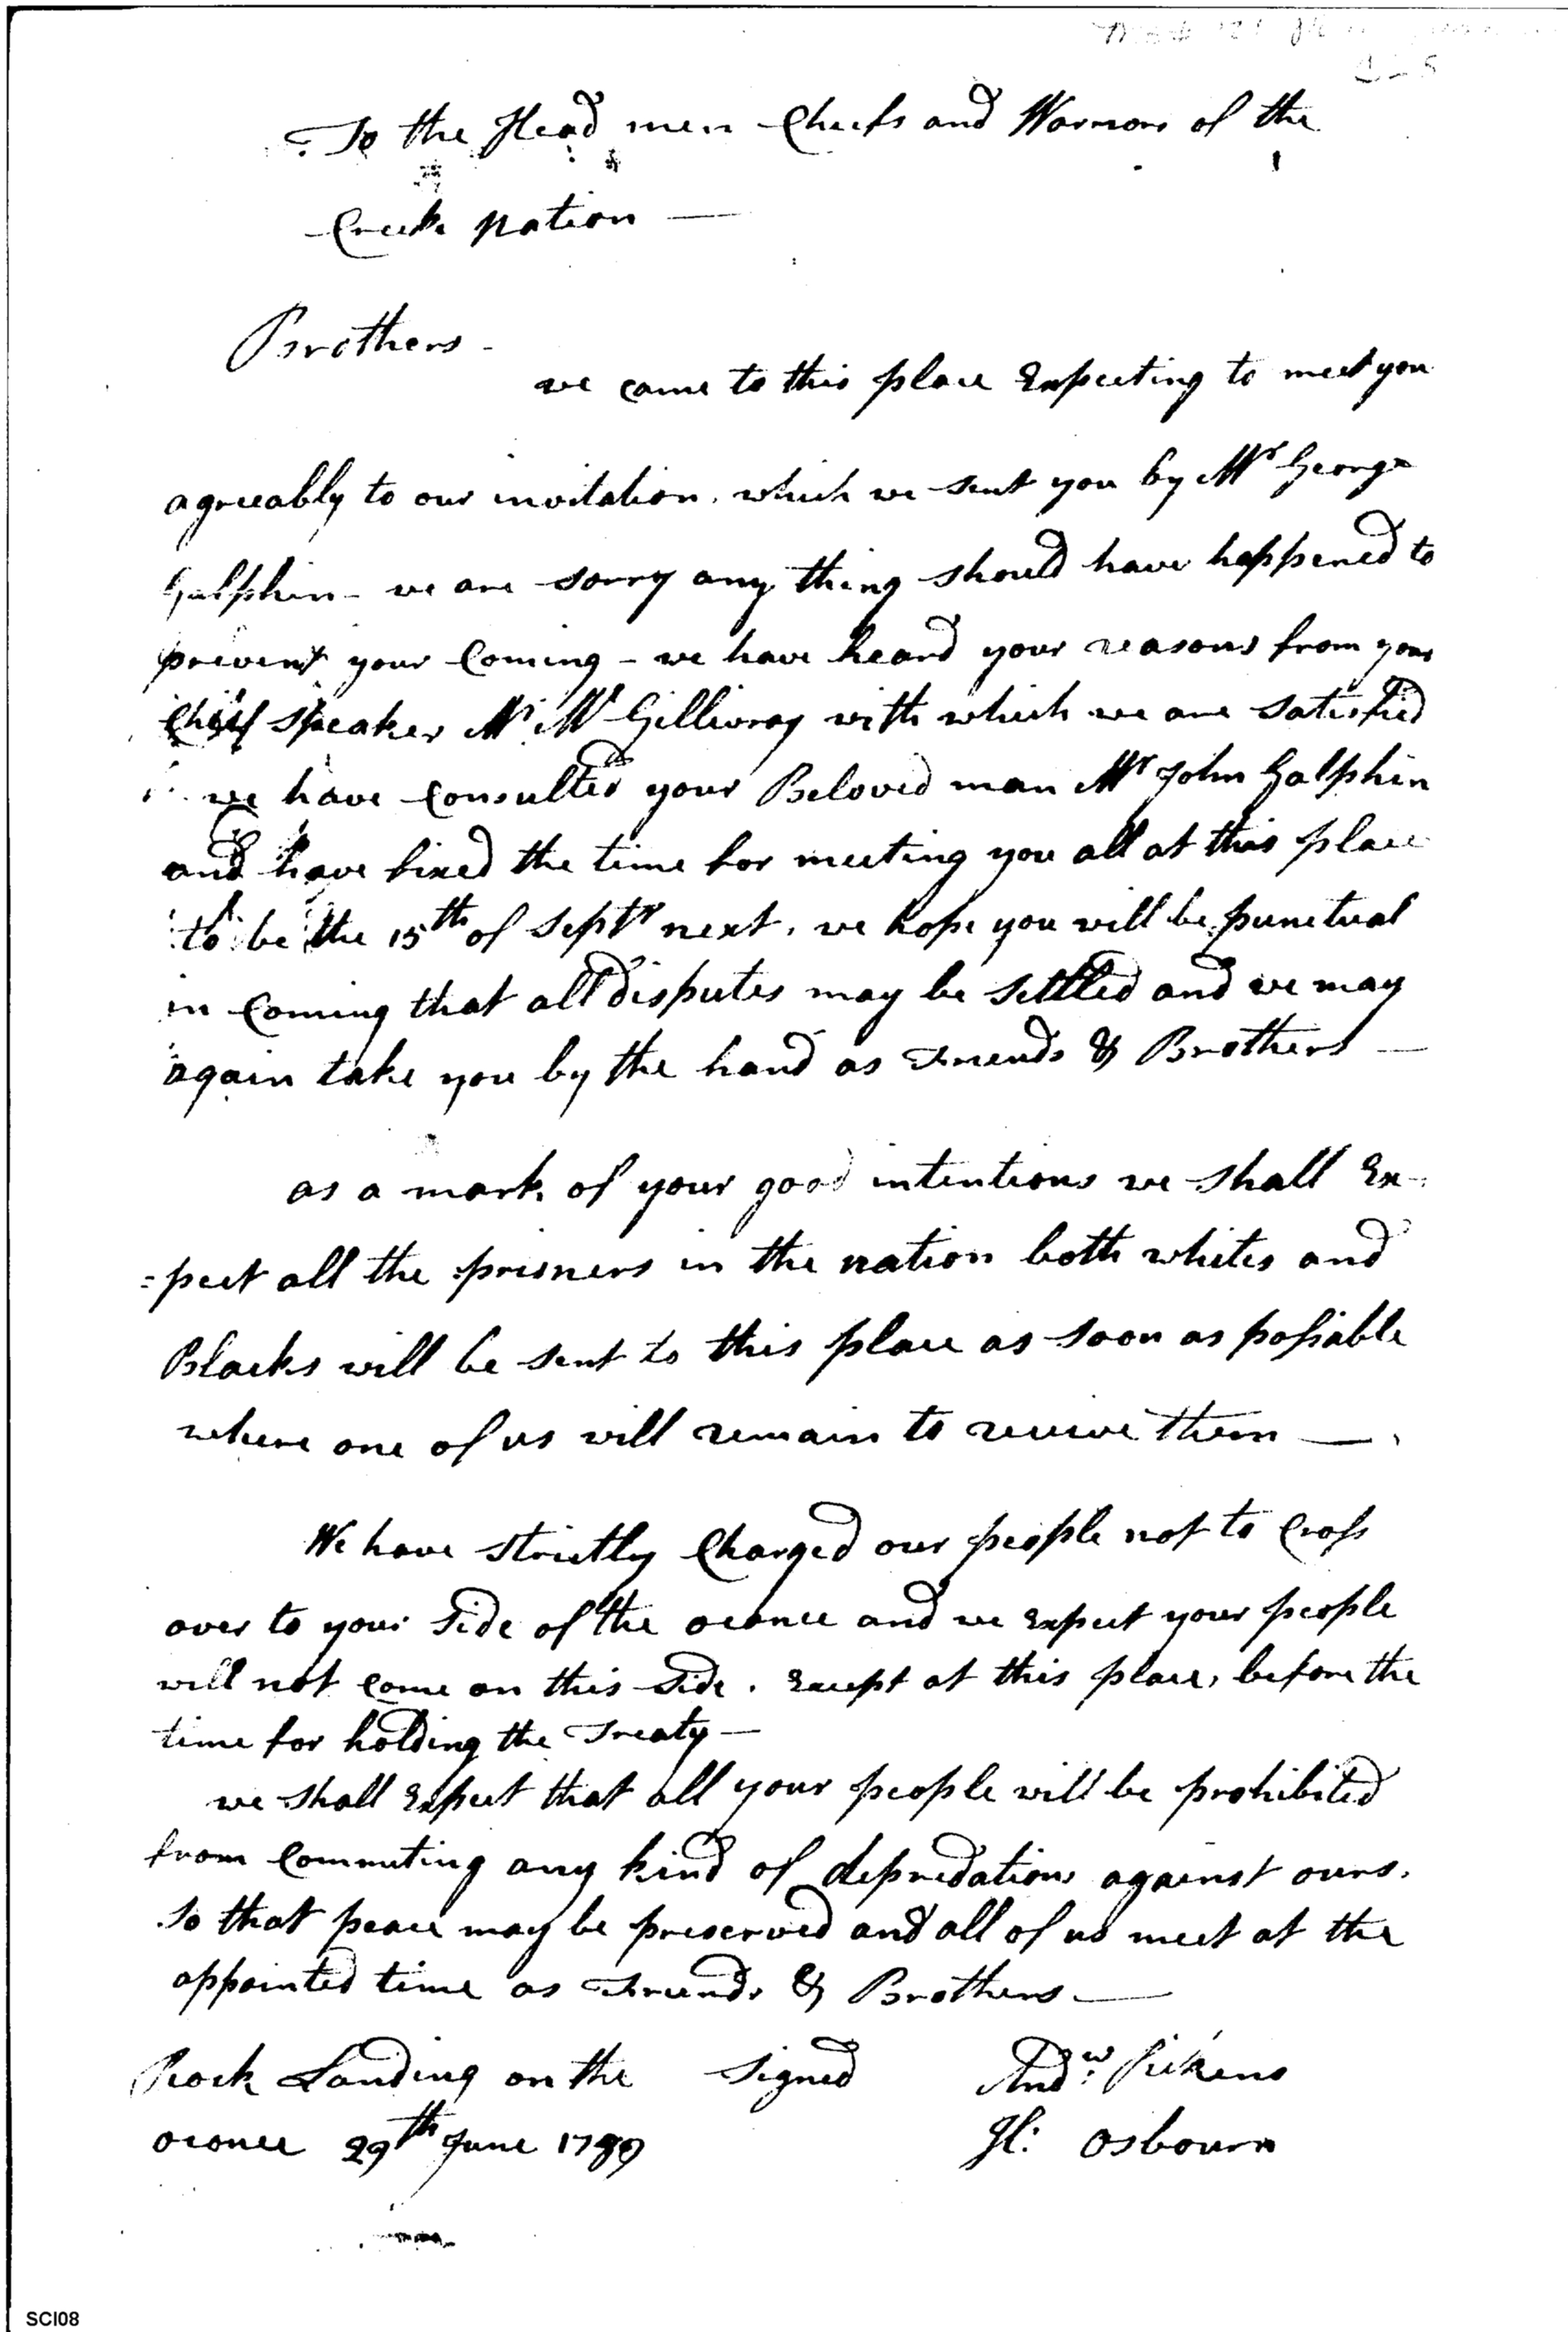 To the Head men Chiefs and Warriors of the
Creek Nation —
Brothers -
we came to this place Expecting to meet you
agreeably to our invitation, which we sent you by Mr George
Galphin - we are sorry any thing should have happened to
prevent your Coming - we have heard your reasons from your
Chief Speaker Mr Mc Gillivray with which we are satisfied
we have Consulted your Beloved man Mr John Galphin
and have fixed the time for meeting you all at this place
to be the 15th of Septr next, we hope you will be punctual
in Coming that all disputes may be settled and we may
again take you by the hand as Friends & Brothers —
as a mark of your good intentions we shall Ex-
=pect all the prisners in the nation both whites and
Blacks will be sent to this place as soon as possiable
where one of us will remain to receive them —
We have strictly Charged our people not to Cross
over to your Side of the oconee and we Expect your people
will not come on this Side. Except at this place, before the
time for holding the Treaty —
we shall Expect that all your people will be prohibited
from Commiting any kind of depredations against ours.
So that peace may be preserved and all of us meet at the
appointed time as Friends & Brothers —
Rock Landing on the Signed Andw: Pickens
oconee 29th June 1789 H: Osbourn
SCI08